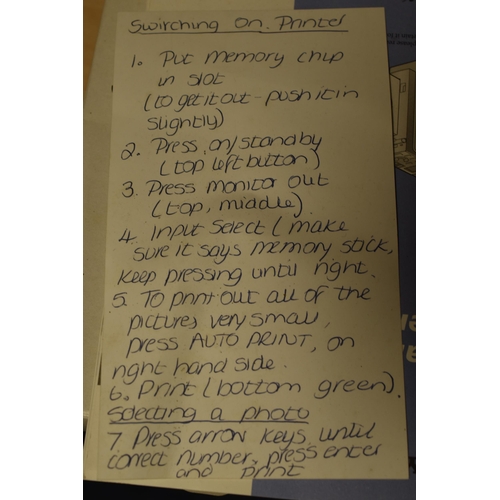 Switching On Printer
1. Put memory chip
in slot
(to get it out - push it in
slightly)
2. Press on/standby
(top left button)
3. Press monitor out
(top, middle)
4. Input Select (make
sure it says memory stick,
keep pressing until right.
5. To print out all of the
pictures very small,
press AUTO PRINT, on
right hand side.
6. Print (bottom green).
Selecting a photo
7 Press arrow keys until
correct number, press enter
and print